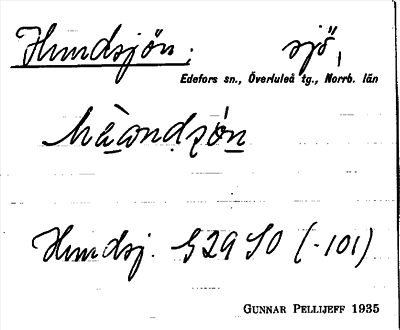 Hundsjön; sjö,
Edefors sn., Överluleå tg., Norrb. län
Hundsj. G29SO (-101)
GUNNAR PELLIJEFF 1935